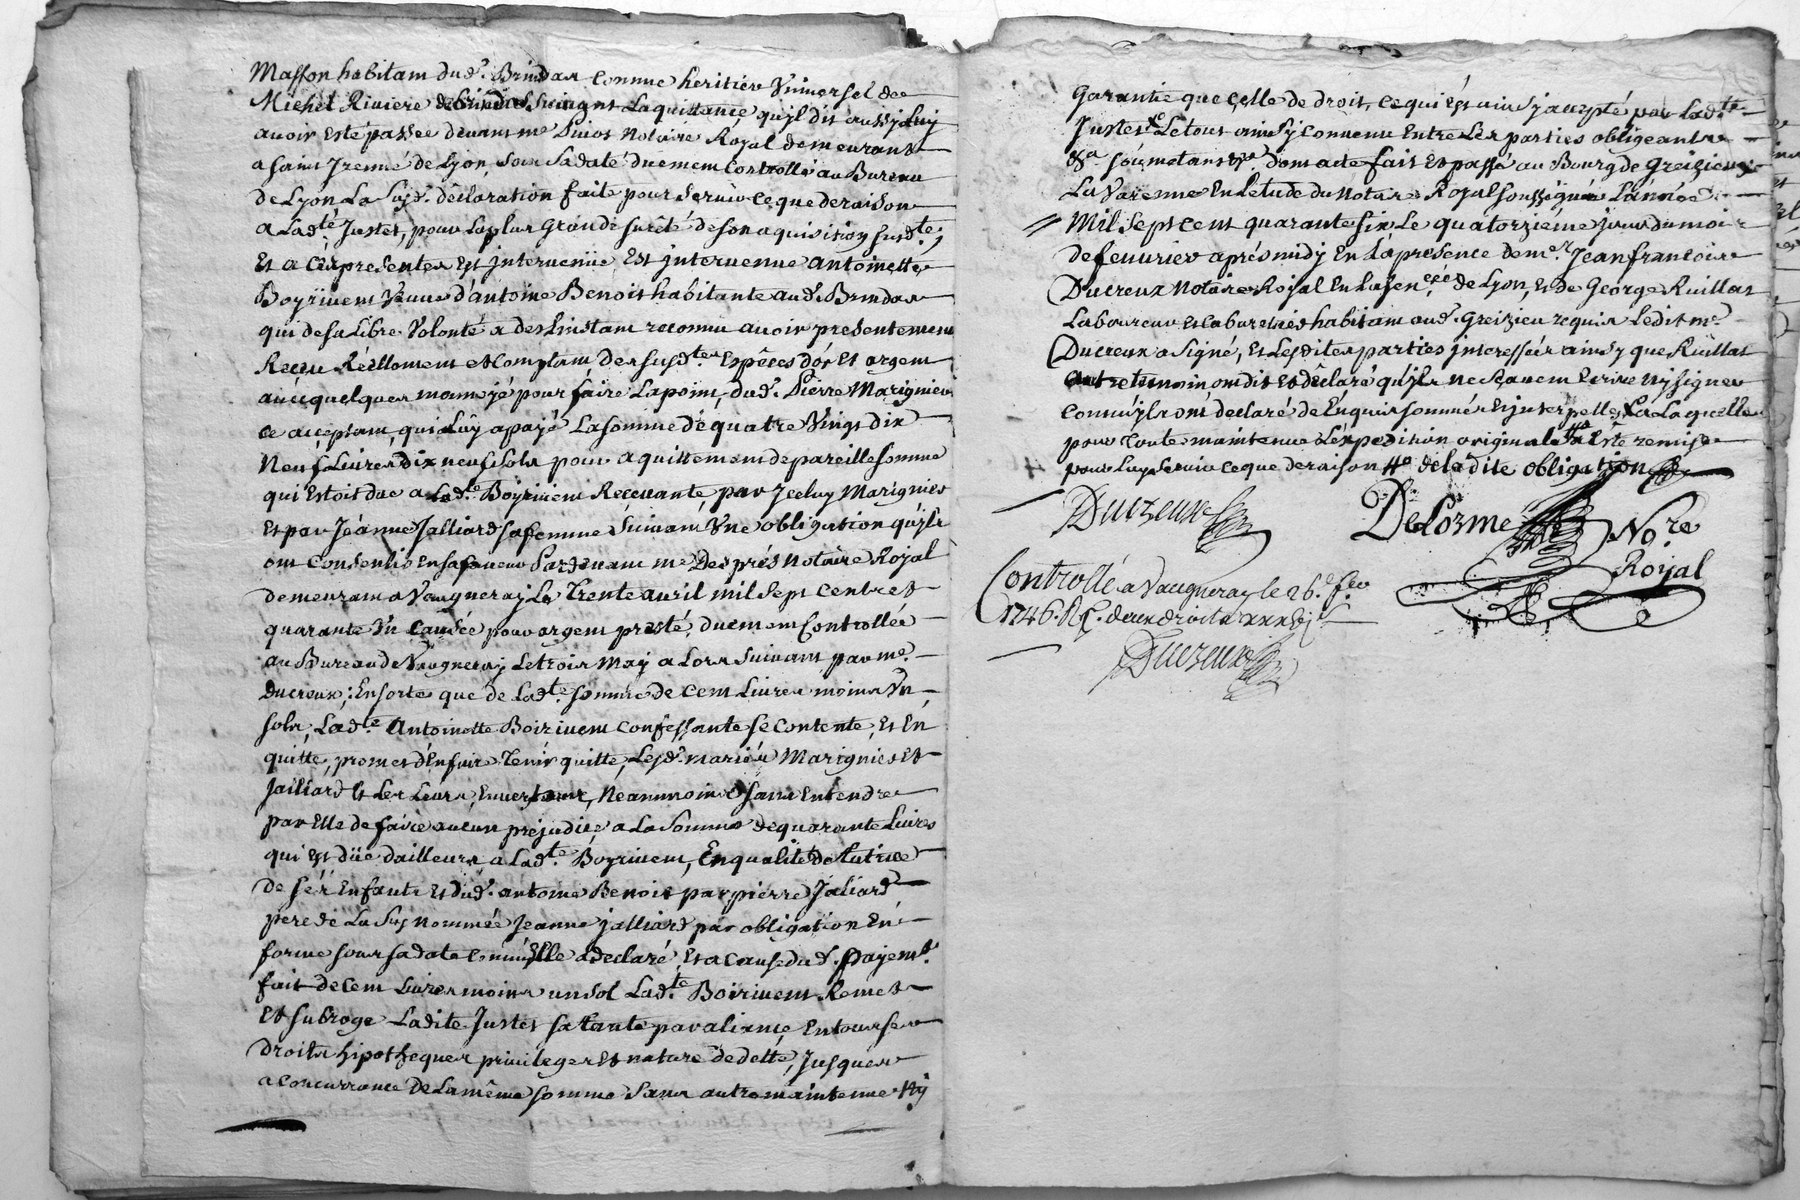 Masson habitant dud.t Brindas comme heritier Universel de
Michel Riviere de Brindas Suivant La quittance qu'jl dit aussy Luy
avoir esté passée devant me Notaire Royal demeurant
a saint Jrenné de Lyon, Sous Sa daté duement Controllé au Bureau
de Lyon La Susd. déclaration faite pour Servir ce que de raison
a Ladte Justet, pour La plus Grande sureté de son aquisition Susdte,
Et a ces presentes Est jntervenüe Est jntervenue antoinette
Boyrivent Veuve d'antoine Benoit habitante aud. Brindas
qui de sa Libre Volonté a des Linstant reconnu avoir presentement
Receu Réellement et Comptant des susdtes Espèces d'or Et argent
avec quelques monnojé pour faire Lapoint, dud. Pierre Marignier
ce acceptant, qui Lûy a payé La somme dé quatre Vingt dix
Neuf Livres dix neuf sols pour aquittement de pareille somme
qui Estoit due a Ladte Boyrivent Recevante, par Jceluy Marignier
Et par Jéanne Jalliard sa femme Suivant Vne obligation qu'jls
ont Consentis En sa faveur Pardevant me Després Notaire Royal
demeurant a Vaugneray Le Trente avril mil Sept Centret
quarante Vn Causée pour argent presté, duement Controllée
au Bureau de Vaugneray Le trois May a Lors Suivant par me.
Ducreux; Ensorte que de Ladte somme de Cent Livres moins Vn
sols, Ladte Antoinette Boirivent confessante se contente, Et En
quitte, promet d'En faire Tenir quitte, Lesd. mariés Marignier Et
Jailliard Et Les Leurs, Envers tous, Neanmoins sans Entendre
par Elle de faire aucun préjudice a La Somme de quarante Livres
qui Est düe dailleurs a Ladte Boyrivent, En qualité de tutrice
de sés Enfants Et dud. antoine Benoit par pierre Jaliard
pere de La Susnommée Jeanne jalliard par obligation En
forme sous sa date Comme Elle a declaré, Et a Cause dud. payemt.
fait de Cent Livres moins un sol Ladte Boirivent Remet
Et subroge Ladite Justet sa tante par aliance En tous ses
droits hipotheques privileges Et nature de dette, Jusques
a concurrance De La même somme Sans autre maintenue Ny
Garantie que celle de droit, ce qui Est ainsy accepté par Ladte
Justet, Le tout ainsy Convenu Entre Les parties obligeant
&a soûmetant &a dont acte fait Et passé au Bourg de Greizieu
La Varenne En Letude du Notaire Royal soussigné Lannée
Mil Sept Cent quarante six Le quatorziéme jour du moi
de fevrier aprés midy En Lá presence de me. Jean francois
Ducreux Notaire Royal En La sencée de Lyon, et de George Ruillat
Laboureur habitant aud. Greizieu requis Ledit me
Ducreux a Signé, Et Lesdites parties jnteressés ainsy que Ruillat
ont dit Et déclaré qu'jls ne Scavent Ecrire Ny signer
Comme jls ont declaré de Enquis sommés Et jnterpellés La Laquelle
pour Toute maintenue L'éxpedition originale Esté remise
pour Luy servir ce que de raison de la dite obligation
Ducreux
Delorme Nore
Royal
Controllé a Vaugneray le 26.e fev
1746. R. deux droits
Ducreux